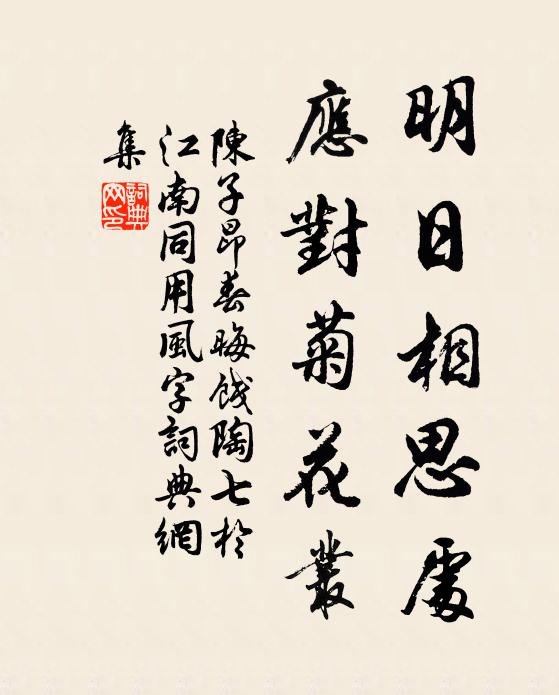 明日相思處
應對菊花叢
陳子昂春晦餞陶七於
江南同用風字詞典網
集
詞典
网印